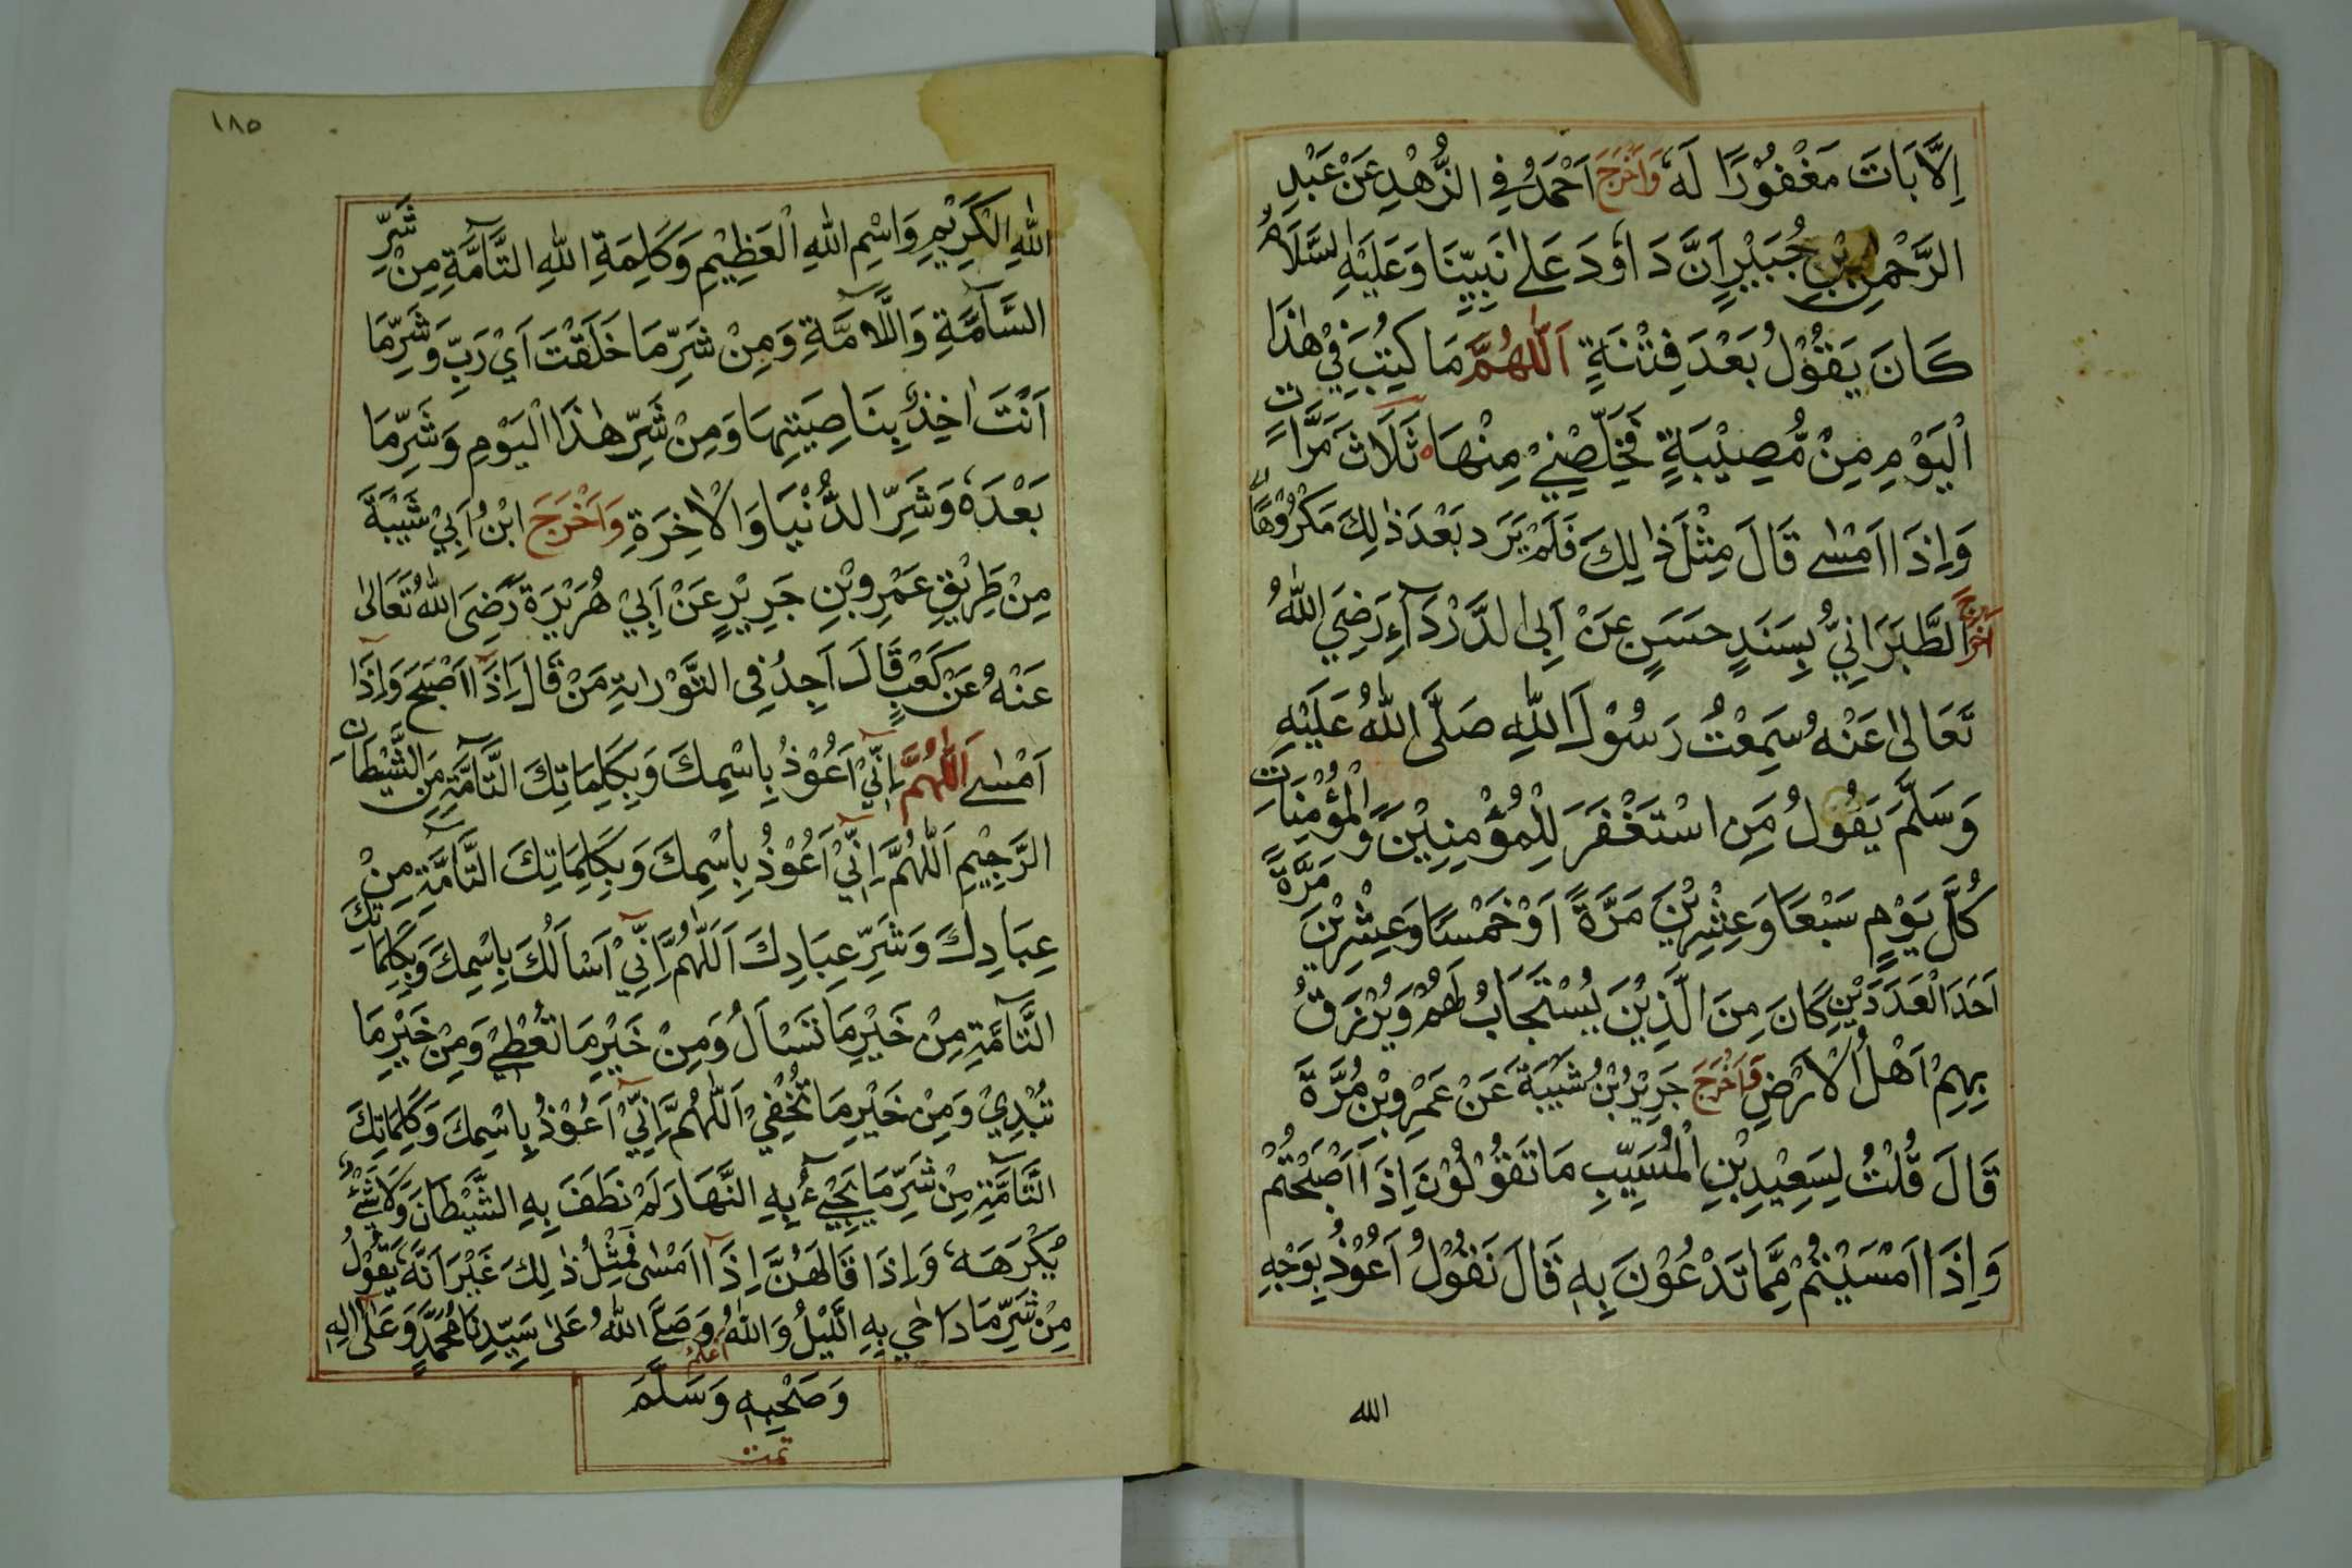 اِلَّا بَاتَ مَغْفُوْرًا لَهٗ وَاَخْرَجَ اَحْمَدُ فِي الزُّهْدِ عَنْ عَبْدِ
الرَّحْمٰنِ بْنِ جُبَيْرٍ اَنَّ دَاوٗدَ عَلٰى نَبِيِّنَا وَعَلَيْهِ السَّلَامُ
كَانَ يَقُوْلُ بَعْدَ فِتْنَةٍ اَللّٰهُمَّ مَا كُتِبَ فِيْ هٰذَا
الْيَوْمِ مِنْ مُّصِيْبَةٍ فَخَلِّصْنِيْ مِنْهَا ثَلَاثَ مَرَّاتٍ
وَاِذَا اَمْسٰى قَالَ مِثْلَ ذٰلِكَ فَلَمْ يَرَ بَعْدَ ذٰلِكَ مَكْرُوْهًا
اَخْرَجَ الطَّبَرَانِيُّ بِسَنَدٍ حَسَنٍ عَنْ اَبِي الدَّرْدَآءِ رَضِيَ اللّٰهُ
تَعَالٰى عَنْهُ سَمِعْتُ رَسُوْلَ اللّٰهِ صَلَّى اللّٰهُ عَلَيْهِ
وَسَلَّمَ يَقُوْلُ مَنِ اسْتَغْفَرَ لِلْمُؤْمِنِيْنَ وَالْمُؤْمِنَاتِ
كُلَّ يَوْمٍ سَبْعًا وَعِشْرِيْنَ مَرَّةً اَوْ خَمْسًا وَعِشْرِيْنَ مَرَّةً
اَحَدَ الْعَدَدَيْنِ كَانَ مِنَ الَّذِيْنَ يُسْتَجَابُ لَهُمْ وَيُرْزَقُ
بِهِمْ اَهْلُ الْاَرْضِ وَاَخْرَجَ جَرِيْرُ بْنُ شَيْبَةَ عَنْ عَمْرِو بْنِ مُرَّةَ
قَالَ قُلْتُ لِسَعِيْدِ بْنِ الْمُسَيِّبِ مَا تَقُوْلُوْنَ اِذَا اَصْبَحْتُمْ
وَاِذَا اَمْسَيْتُمْ مِمَّا تَدْعُوْنَ بِهٖ قَالَ نَقُوْلُ اَعُوْذُ بِوَجْهِ
الله
١٨٥
اللّٰهِ الْكَرِيْمِ وَاسْمِ اللّٰهِ الْعَظِيْمِ وَكَلِمَةِ اللّٰهِ التَّآمَّةِ مِنْ شَرِّ
السَّآمَّةِ وَاللَّامَّةِ وَمِنْ شَرِّ مَا خَلَقْتَ اَيْ رَبِّ وَشَرِّ مَا
اَنْتَ اٰخِذٌ بِنَاصِيَتِهَا وَمِنْ شَرِّ هٰذَا الْيَوْمِ وَشَرِّ مَا
بَعْدَهٗ وَشَرِّ الدُّنْيَا وَالْاٰخِرَةِ وَاَخْرَجَ ابْنُ اَبِيْ شَيْبَةَ
مِنْ طَرِيْقِ عَمْرِو بْنِ جَرِيْرٍ عَنْ اَبِيْ هُرَيْرَةَ رَضِيَ اللّٰهُ تَعَالٰى
عَنْهُ عَنْ كَعْبٍ قَالَ اَجِدُ فِي التَّوْرٰىةِ مَنْ قَالَ اِذَا اَصْبَحَ وَاِذَا
اَمْسٰى اَللّٰهُمَّ اِنِّيْ اَعُوْذُ بِاسْمِكَ وَبِكَلِمَاتِكَ التَّآمَّةِ مِنَ الشَّيْطَانِ
الرَّجِيْمِ اَللّٰهُمَّ اِنِّيْ اَعُوْذُ بِاسْمِكَ وَبِكَلِمَاتِكَ التَّآمَّةِ مِنْ
عِبَادِكَ وَشَرِّ عِبَادِكَ اَللّٰهُمَّ اِنِّيْ اَسْاَلُكَ بِاسْمِكَ وَبِكَلِمَاتِكَ
التَّآمَّةِ مِنْ خَيْرِ مَا تَسْاَلُ وَمِنْ خَيْرِ مَا تُعْطِيْ وَمِنْ خَيْرِ مَا
تُبْدِيْ وَمِنْ خَيْرِ مَا تُخْفِيْ اَللّٰهُمَّ اِنِّيْ اَعُوْذُ بِاسْمِكَ وَكَلِمَاتِكَ
التَّآمَّةِ مِنْ شَرِّ مَا يَجِيْءُ بِهِ النَّهَارُ لَمْ نَطَفَ بِهِ الشَّيْطَانَ وَلَا شَيْءٌ
يَكْرَهَهٗ وَاِذَا قَالَهُنَّ اِذَا اَمْسٰى فَمِثْلُ ذٰلِكَ غَيْرَ اَنَّهٗ يَقُوْلُ
مِنْ شَرِّ مَا دَاخِي بِهِ اللَّيْلُ وَاللّٰهُ اَعْلَمُ وَصَلَّى اللّٰهُ عَلٰى سَيِّدِنَا مُحَمَّدٍ وَعَلٰى اٰلِهٖ
وَصَحْبِهٖ وَسَلَّمَ
تمت